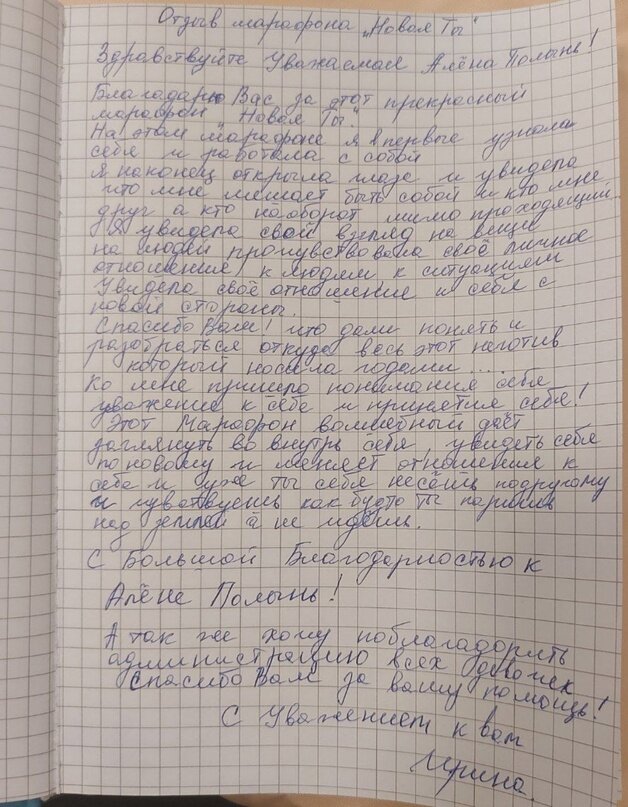 Отзыв марафона „Новая Ты"
Здравствуйте Уважаемая Алёна Полынь!
Благодарю Вас за этот прекрасный
марафон "Новая Ты"
На этом марафоне я впервые узнала
себя и работала с собой
я наконец открыла глаза и увидела
что мне мешает быть собой и кто мне
друг а кто наоборот мимо проходящий
Я увидела свой взгляд на вещи
на людей прочувствовала своё личное
отношение к людям к ситуациям
Увидела своё отношение и себя с
новой стороны.
Спасибо Вам! что дали понять и
разобраться откуда весь этот неготив
который носила годами ....
Ко мне пришло понимания себя
уважение к себе и принятия себя!
Этот Марафон волшебный даёт
заглянуть во внутрь себя, увидеть себя
по новому и меняет отношения к
себе и уже ты себя несёшь подругому
и чувствуешь как будто ты паришь
над землей а не идёшь.
С Большой Благодарностью к
Алёне Полынь!
А так же хочу поблагодорить
администрацию всех девочек
Спасибо Вам за вашу помощь!
С Уважением к вам
Ирина